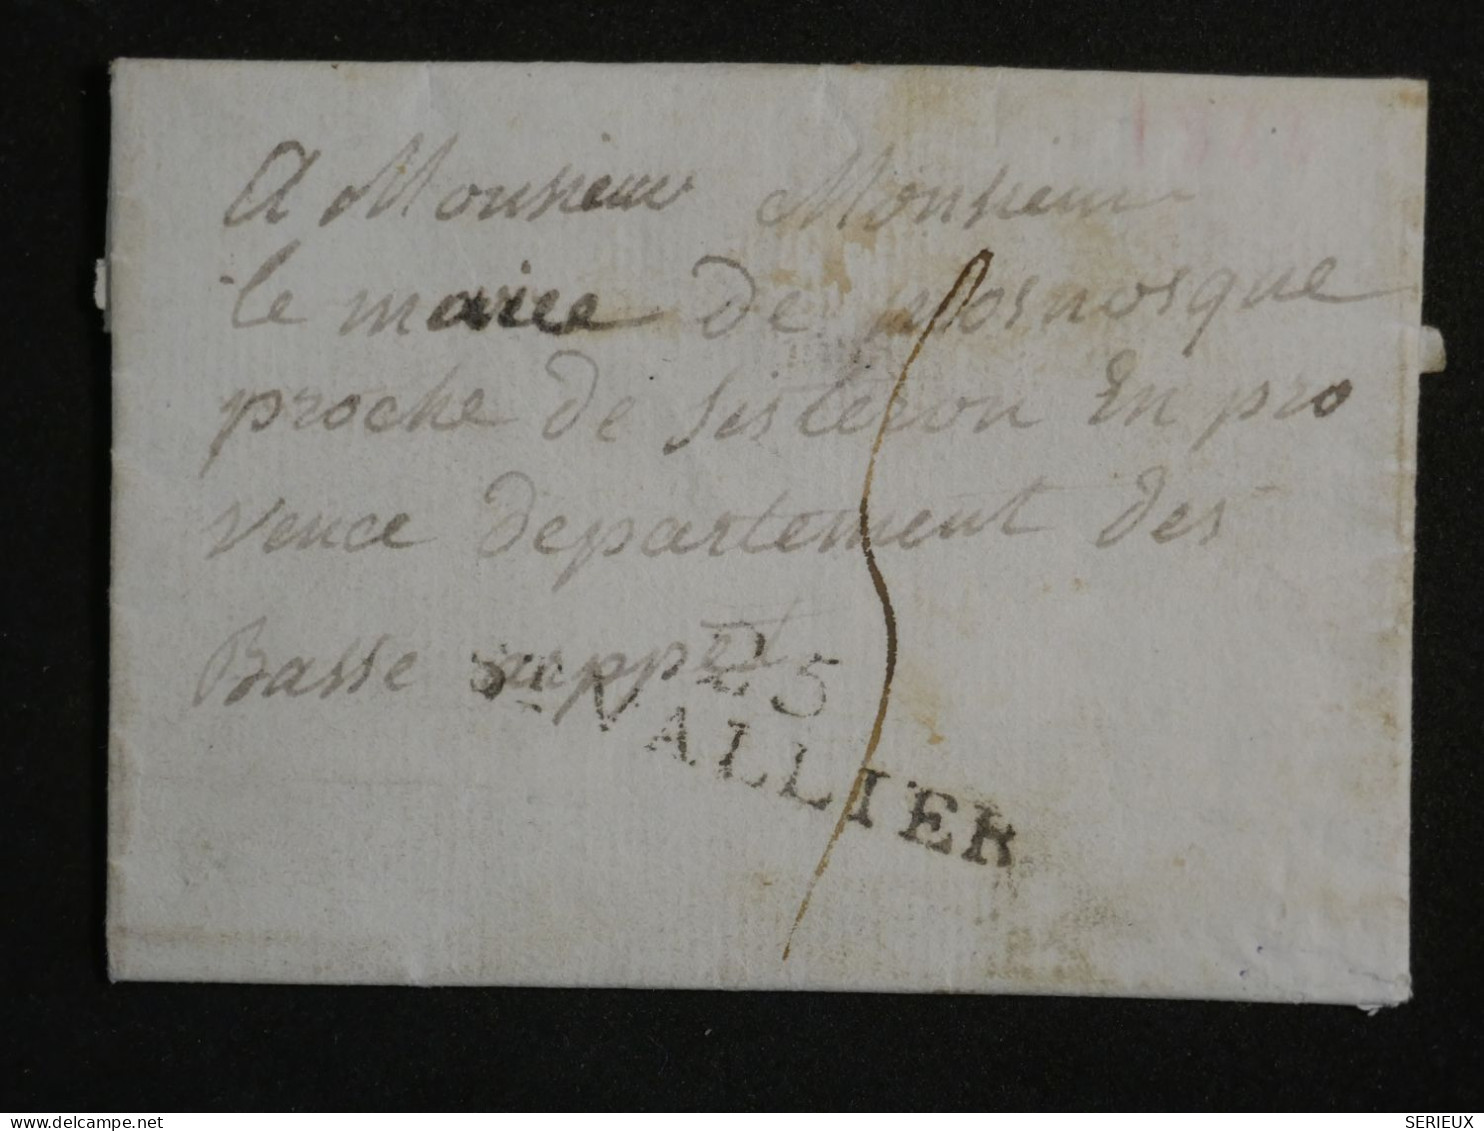 A Monsieur Monsieur
le maire de mosnosque
proche de sisteron En pro
vence departement des
Basse
25
St VALLIER
SERIEUX